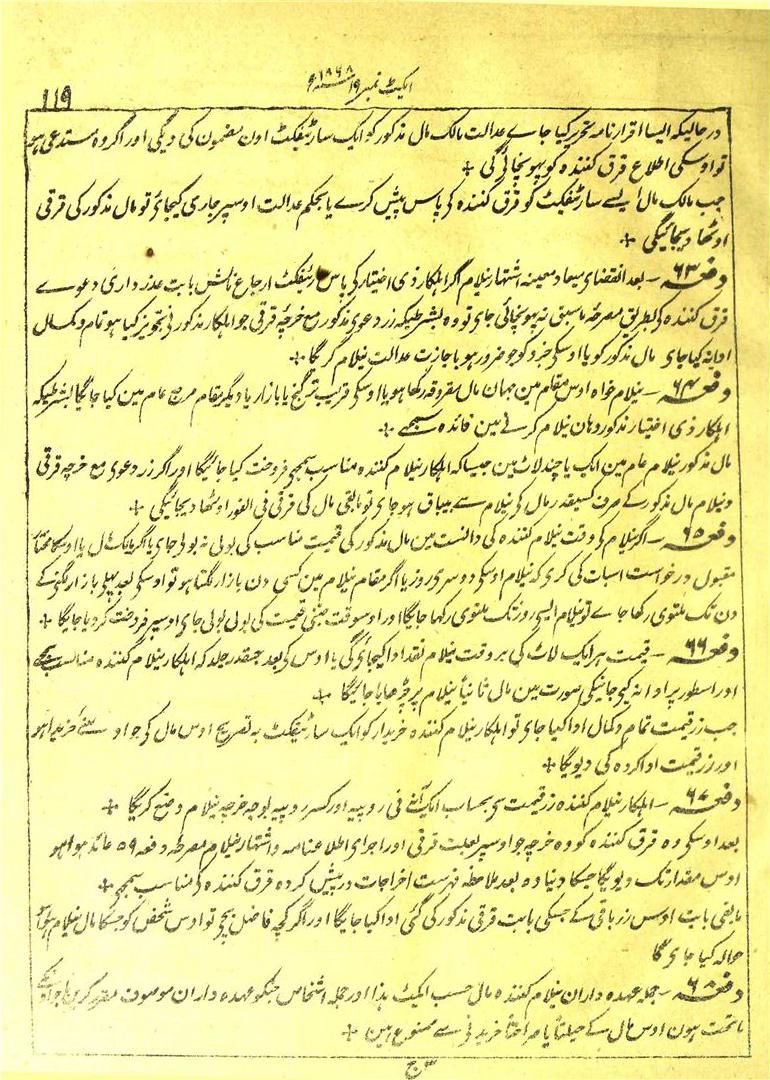 ایکٹ نمبر ۱۹ سنہ ۱۸۶۸ء
119
درحالیکہ ایسا اقرارنامہ تحریر کیا جاے عدالت مالک مال مذکور کو ایک سارٹیفکٹ اوس مضمون کی دیگی اور اگر وہ مستدعی ہو
تو اوسکی اطلاع قرق کنندہ کو پہونچائی گی +
جب مالک مال ایسے سارٹیفکٹ کو قرق کنندہ کی پاس پیش کرے یا بحکم عدالت اوسپر جاری کیجائی تو مال مذکور کی قرقی
اوٹھا دیجائیگی +
دفعہ ۶۳ – بعد انقضای میعاد معینہ اشتہار نیلام اگر اہلکار ذی اختیار کی پاس سارٹیفکٹ ارجاع نالش بابت عذرداری دعوے
قرق کنندہ کی بطریق مصرحہ ماسبق نہ پہونچائی جای تو وہ بشرطیکہ زر دعوی مذکور مع خرچہ قرقی جو اہلکار مذکور نی تجویز کیا ہو تمام و کمال
ادا نہ کیا جای مال مذکور کو یا اوسکی جزو کو جو ضرور ہو باجازت عدالت نیلام کریگا +
دفعہ ۶۴ – نیلام خواہ اوس مقام مین جہان مال مقروقہ رکھا ہو یا اوسکی قریب تر گنج یا بازار یا دیگر مقام مرجع عام مین کیا جائیگا بشرطیکہ
اہلکار ذی اختیار مذکور وہان نیلام کرنے مین فائدہ سمجھے +
مال مذکور نیلام عام مین ایک یا چند لاٹ مین جیسا کہ اہلکار نیلام کنندہ مناسب سمجھی فروخت کیا جائیگا اور اگر زر دعوی مع خرچہ قرقی
و نیلام مال مذکور کے صرف کسیقدر مال کی نیلام سے بیباق ہو جای تو مابقی مال کی قرقی فی الفور اوٹھا دیجائیگی +
دفعہ ۶۵ – اگر نیلام کی وقت نیلام کنندہ کی دانست مین مال مذکور کی قیمت مناسب کی بولی نہ بولی جای یا اگر مالک مال یا اوسکا مختار
مقبول درخواست اسبات کی کری کہ نیلام اوسکی دوسری روز یا اگر مقام نیلام مین کسی دن بازار لگتا ہو تو اوسکی بعد پہلی بازار لگنے کے
دن تک ملتوی رکھا جاے تو نیلام ایسی روز تک ملتوی رکھا جائیگا اور اوسوقت جتنی قیمت کی بولی بولی جای اوسپر فروخت کر دیا جائیگا +
دفعہ ۶۶ – قیمت ہر ایک لاٹ کی بر وقت نیلام نقد ادا کیجائی گی یا اوس کی بعد جسقدر جلد کہ اہلکار نیلام کنندہ مناسب سمجھے
اور اسطور پر ادا نہ کیی جانیکی صورت مین مال ثانیاً نیلام پر چڑھایا جائیگا +
جب زر قیمت تمام و کمال ادا کیا جای تو اہلکار نیلام کنندہ خریدار کو ایک سارٹیفکٹ بہ تصریح اوس مال کی جو اوسنے خریدا ہو
اور زر قیمت ادا کردہ کی دیویگا +
دفعہ ۶۷ – اہلکار نیلام کنندہ زر قیمت سی بحساب ایک آنے فی روپیہ اور کسر روپیہ بوجہ خرچہ نیلام وضع کریگا +
بعد اوسکی وہ قرق کنندہ کو وہ خرچہ جو اوسپر بعلت قرقی اور اجرای اطلاعنامہ و اشتہار نیلام مصرحہ دفعہ ۵۹ عائد ہوا ہو
اوس مقدار تک دیویگا جسکا دینا وہ بعد ملاحظہ فہرست اخراجات درپیش کردہ قرق کنندہ کی مناسب سمجھی +
مابقی بابت اوس زر باقی کے جسکی بابت قرقی مذکور کی گئی ادا کیا جائیگا اور اگر کچھ فاضل بچی تو اوس شخص کو جسکا مال نیلام ہوا ہو
حوالہ کیا جای گا
دفعہ ۶۸ – جملہ عہدہ داران نیلام کنندہ مال حسب ایکٹ ہذا اور جملہ اشخاص جنکو عہدہ داران موصوف مقرر کرین یا جو اونکے
ماتحت ہون اوس مال کے حیلتاً یا صراحتاً خریدنی سے ممنوع ہین +